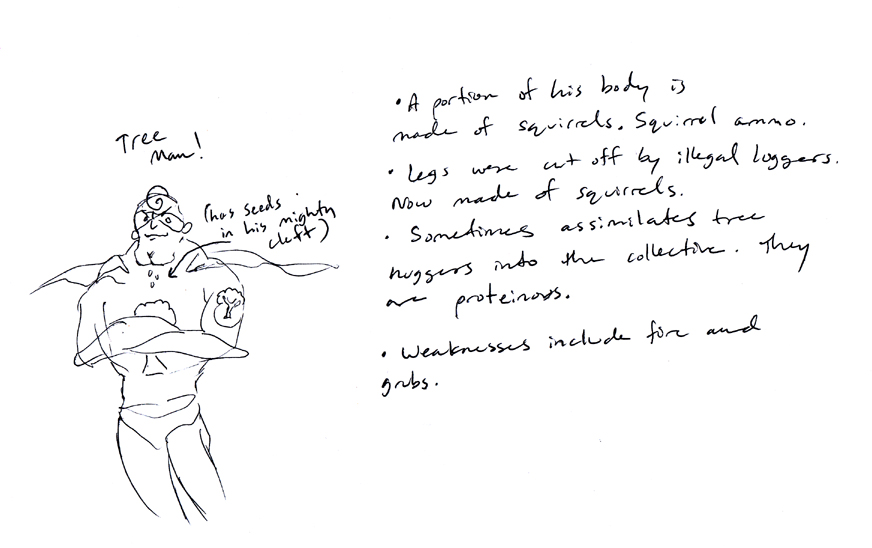 Tree
Man!
(has seeds
in his mighty
cleft)
• A portion of his body is
made of squirrels. Squirrel ammo.
• Legs were cut off by illegal loggers.
Now made of squirrels.
• Sometimes assimilates tree
huggers into the collective. They
are proteinous.
• Weaknesses include fire and
grubs.